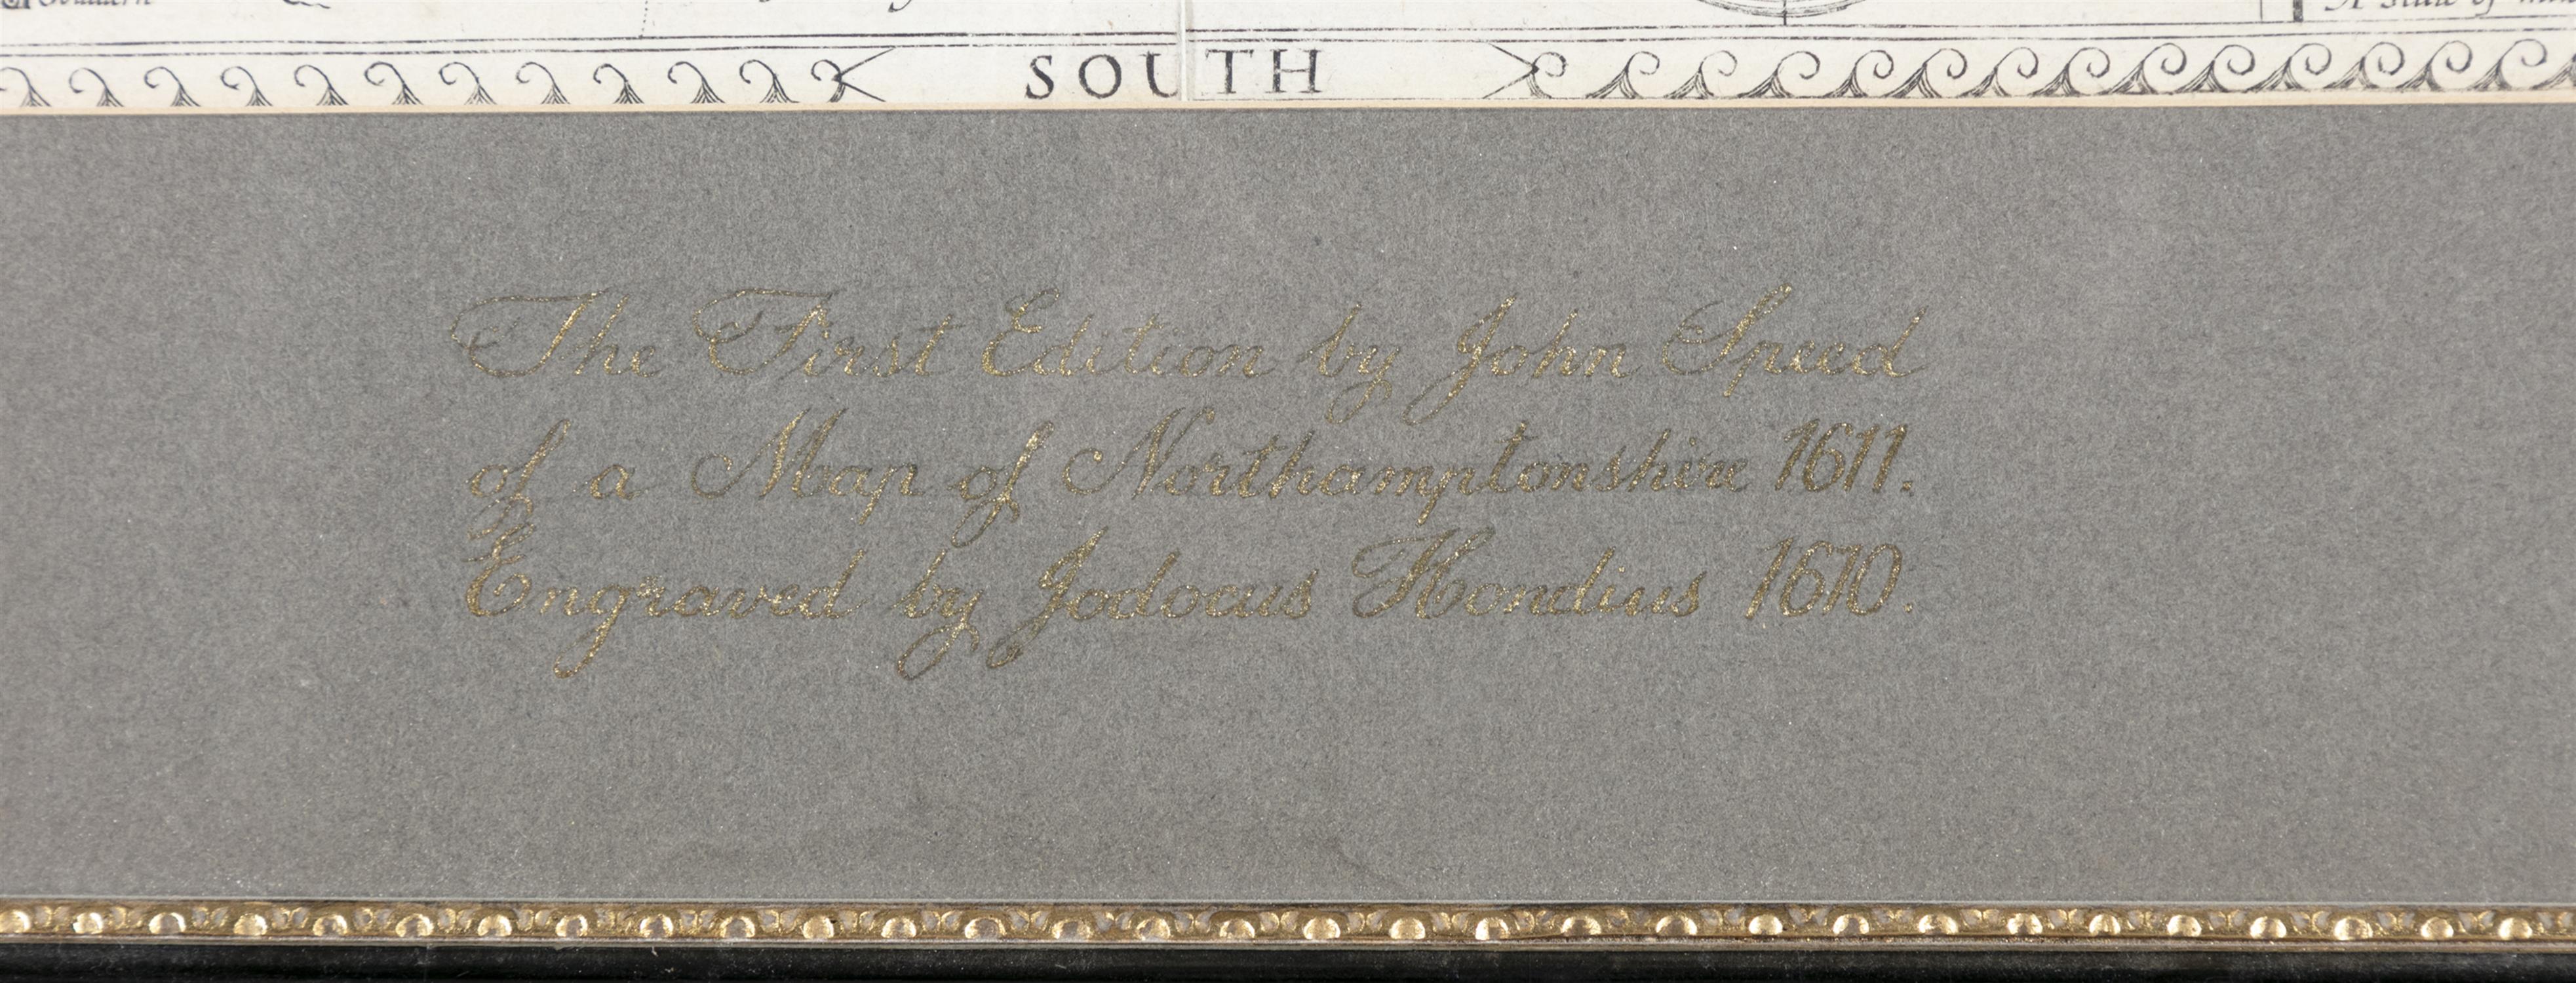 SOUTH
The First Edition by John Speed
of a Map of Northamptonshire 1611.
Engraved by Jodocus Hondius 1610.